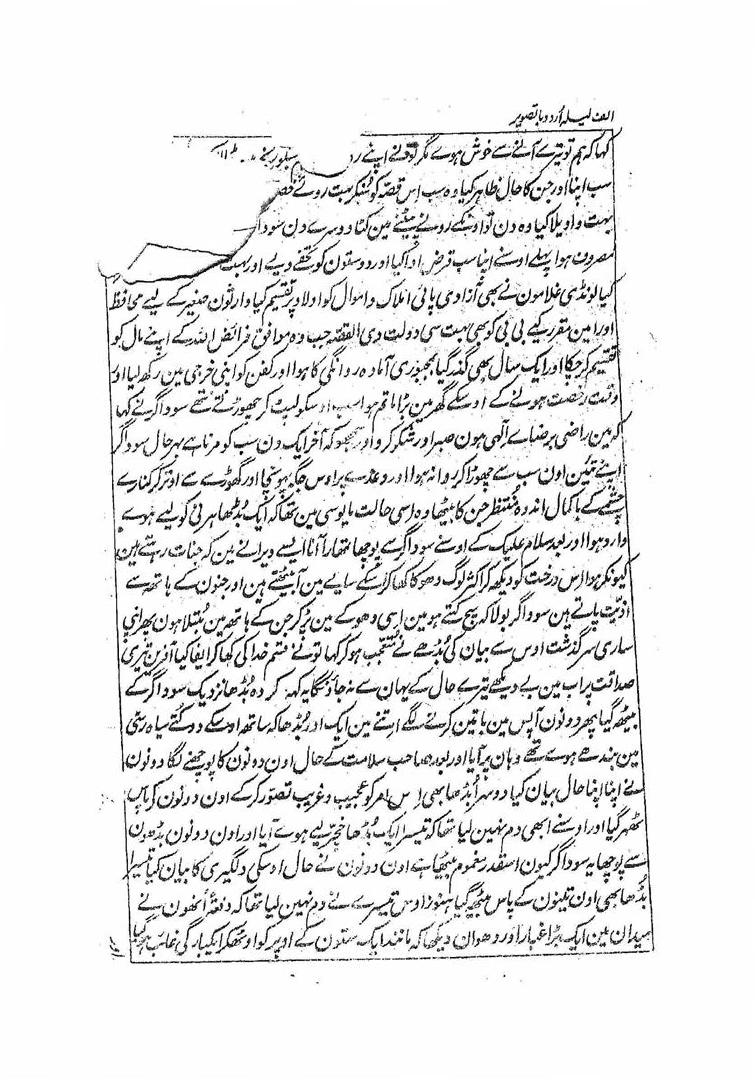 الف لیلہ اُردو با تصویر
کہا کہ ہم تو تیرے آنے سے خوش ہوے مگر تو نے اپنے
سب اپنا اور جن کا حال ظاہر کیا وہ سب اس قصہ کو سُنکر بہت روئے
بہت واویلا کیا وہ دن تو اونکے رونے پیٹنے مین کٹا دوسرے دن سوداگر
مصروف ہوا پہلے اوسنے اپنا سب قرض ادا کیا اور دوستون کو تحفے دیے اور بہت
کیا لونڈی غلامون نے بھی آزادی پائی املاک و اموال کو اولاد پر تقسیم کیا وارثون صغیر کے لیے محافظ
اور امین مقرر کیے بی بی کو بھی بہت سی دولت دی القصہ جب وہ موافق فرائض اللہ کے اپنے مال کو
تقسیم کر چکا اور ایک سال بھی گذر گیا بمجبوری آمادہ روانگی کا ہوا اور کفن کو اپنی خرجی مین رکھ لیا اور
وقت رخصت ہونے کے اوسکے گھر مین بڑا ماتم ہوا سب اوسکو لپٹ کر چھوڑتے نتھے سوداگر نے کہا
کہ مین راضی برضاے الٰہی ہون صبر اور شکر کرو اور سمجھو کہ آخر ایک دن سب کو مرنا ہے بہرحال سوداگر
اپنے تئین اون سب سے چھوڑا کر روانہ ہوا اور وعدے پر اوس جگہ پہونچا اور گھوڑے سے اوتر کر کنارے
چشمے کے با کمال اندوہ منتظر جن کا بیٹھا وہ اسی حالت مایوسی مین تھا کہ ایک بُڈھا ہرنی کو لیے ہوے
وارد ہوا اور بعد سلام علیک کے اوسنے سوداگر سے پوچھا تمھارا آنا ایسے ویرانے مین کہ جنات رہتے ہین
کیونکر ہوا اس درخت کو دیکھ کر اکثر لوگ دھوکا کھا کر اسکے سایے مین آ بیٹھتے ہین اور جنون کے ہاتھ سے
اذیت پاتے ہین سوداگر بولا کہ سچ کہتے ہو مین اسی دھوکے مین پڑ کر جن کے ہاتھ مین مُبتلا ہون پھر اپنی
ساری سرگذشت اوس سے بیان کی بُڈھے نے متعجب ہو کر کہا تو نے قسم خدا کی کھا کر ایفا کیا آفرین تیری
صداقت پر اب مین بے دیکھے تیرے حال کے یہان سے نہ جاؤنگا یہ کہہ کر وہ بُڈھا نزدیک سوداگر کے
بیٹھ گیا پھر دونون آپس مین باتین کرنے لگے اتنے مین ایک اور بُڈھا کہ ساتھ اوسکے دو کُتے سیاہ رسّی
مین بندھے ہوے تھے وہان پر آیا اور بعد صاحب سلامت کے حال اون دونون کا پوچھنے لگا دونون
نے اپنا اپنا حال بیان کیا دوسرا بُڈھا بھی اس امر کو عجیب و غریب تصور کر کے اون دونون کے پاس
ٹھہر گیا اور اوسنے ابھی دم نہین لیا تھا کہ تیسرا ایک بُڈھا خچر لیے ہوے آیا اور اون دونون بڈھون
سے پوچھا یہ سوداگر کیون اسقدر مغموم بیٹھا ہے اون دونون نے حال اوسکی دلگیری کا بیان کیا تیسرا
بُڈھا بھی اون تینون کے پاس بیٹھ گیا ہنوز اوس تیسرے نے دم نہین لیا تھا کہ دفعۃً اُنھون نے
میدان مین ایک بڑا غبار اور دھوان دیکھا کہ مانند ایک ستون کے اوپر کو اوٹھکر ایکبارگی غائب ہو گیا